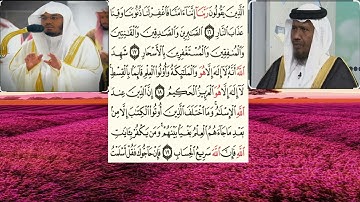 الَّذِينَ يَقُولُونَ رَبَّنَا إِنَّنَا ءَامَنَّا فَاغْفِرْ لَنَا ذُنُوبَنَا وَقِنَا
عَذَابَ النَّارِ ١٦ الصَّابِرِينَ وَالصَّادِقِينَ وَالْقَانِتِينَ
وَالْمُنفِقِينَ وَالْمُسْتَغْفِرِينَ بِالْأَسْحَارِ ١٧ شَهِدَ
اللَّهُ أَنَّهُ لَا إِلَٰهَ إِلَّا هُوَ وَالْمَلَائِكَةُ وَأُولُوا الْعِلْمِ قَائِمًا بِالْقِسْطِ
لَا إِلَٰهَ إِلَّا هُوَ الْعَزِيزُ الْحَكِيمُ ١٨ إِنَّ الدِّينَ عِندَ
اللَّهِ الْإِسْلَامُ وَمَا اخْتَلَفَ الَّذِينَ أُوتُوا الْكِتَابَ إِلَّا مِن
بَعْدِ مَا جَاءَهُمُ الْعِلْمُ بَغْيًا بَيْنَهُمْ وَمَن يَكْفُرْ بِآيَاتِ
اللَّهِ فَإِنَّ اللَّهَ سَرِيعُ الْحِسَابِ ١٩ فَإِنْ حَاجُّوكَ فَقُلْ أَسْلَمْتُ